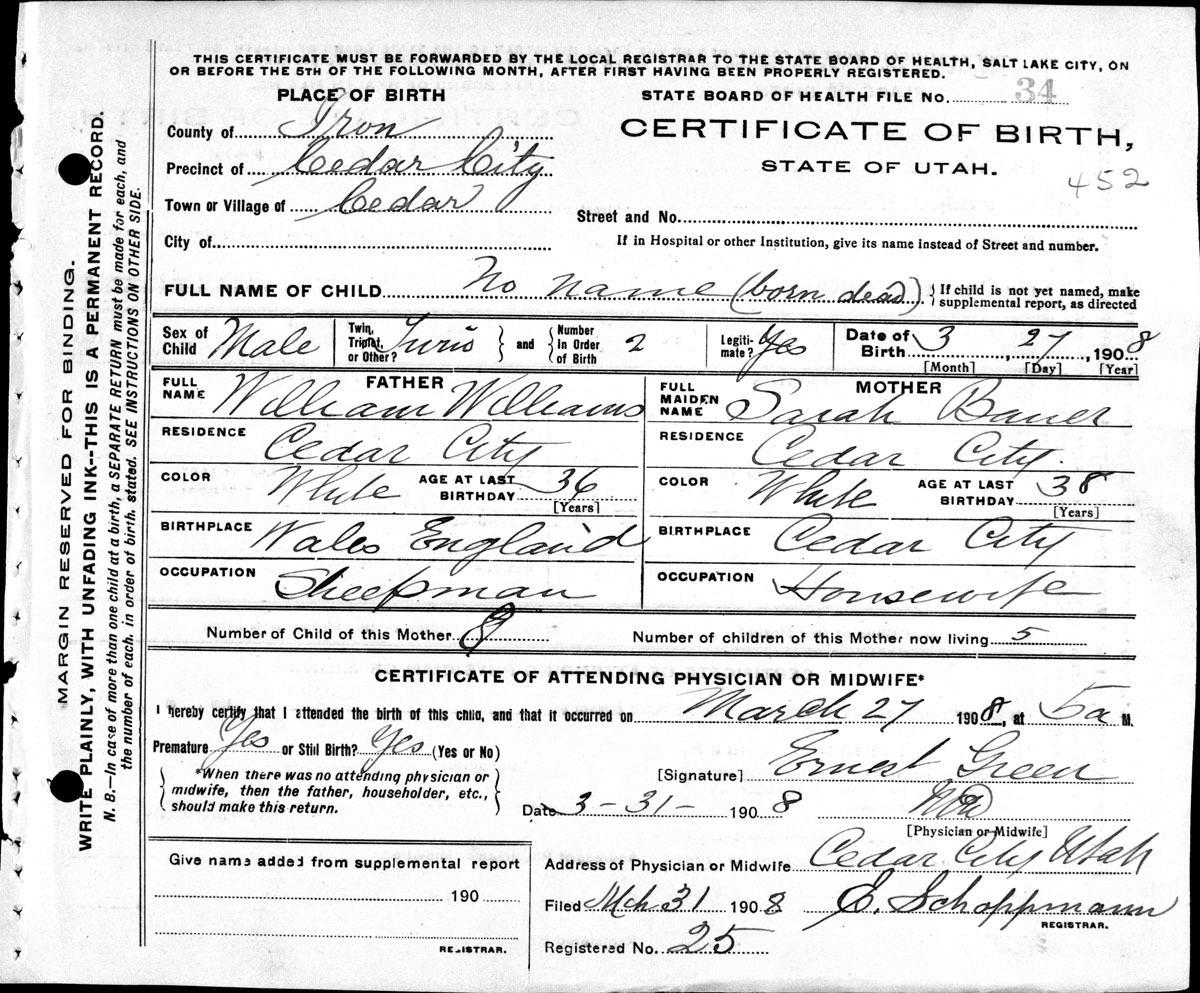 THIS CERTIFICATE MUST BE FORWARDED BY THE LOCAL REGISTRAR TO THE STATE BOARD OF HEALTH, SALT LAKE CITY, ON
OR BEFORE THE 5TH OF THE FOLLOWING MONTH, AFTER FIRST HAVING BEEN PROPERLY REGISTERED.
PLACE OF BIRTH
County of Iron
Precinct of Cedar City
Town or Village of Cedar
City of
STATE BOARD OF HEALTH FILE No. 34
CERTIFICATE OF BIRTH,
STATE OF UTAH.
452
Street and No.
If in Hospital or other Institution, give its name instead of Street and number.
FULL NAME OF CHILD No name (born dead) { If child is not yet named, make
supplemental report, as directed
Sex of Child Male
Twin, Triplet, or Other? Twin } and { Number In Order of Birth 2
Legiti-mate? Yes
Date of Birth 3, 27, 1908
[Month] [Day] [Year]
FATHER
FULL NAME William Williams
RESIDENCE Cedar City
COLOR White AGE AT LAST BIRTHDAY 36
[Years]
BIRTHPLACE Wales England
OCCUPATION Sheepman
MOTHER
FULL MAIDEN NAME Sarah Bauer
RESIDENCE Cedar City.
COLOR White AGE AT LAST BIRTHDAY 38
[Years]
BIRTHPLACE Cedar City
OCCUPATION Housewife
Number of Child of this Mother 8 Number of children of this Mother now living 5
CERTIFICATE OF ATTENDING PHYSICIAN OR MIDWIFE*
I hereby certify that I attended the birth of this child, and that it occurred on March 27 1908, at 5a M.
Premature Yes or Still Birth? Yes (Yes or No)
{ *When there was no attending physician or
midwife, then the father, householder, etc.,
should make this return. }
[Signature] Ernest Green
Date 3-31- 1908
[Physician or Midwife]
Give name added from supplemental report
190
REGISTRAR.
Address of Physician or Midwife Cedar City Utah
Filed Mch 31 1908 E. Schoppmann
REGISTRAR.
Registered No. 25
MARGIN RESERVED FOR BINDING.
WRITE PLAINLY, WITH UNFADING INK--THIS IS A PERMANENT RECORD.
N. B.—In case of more than one child at a birth, a SEPARATE RETURN must be made for each, and
the number of each. in order of birth. stated. SEE INSTRUCTIONS ON OTHER SIDE.